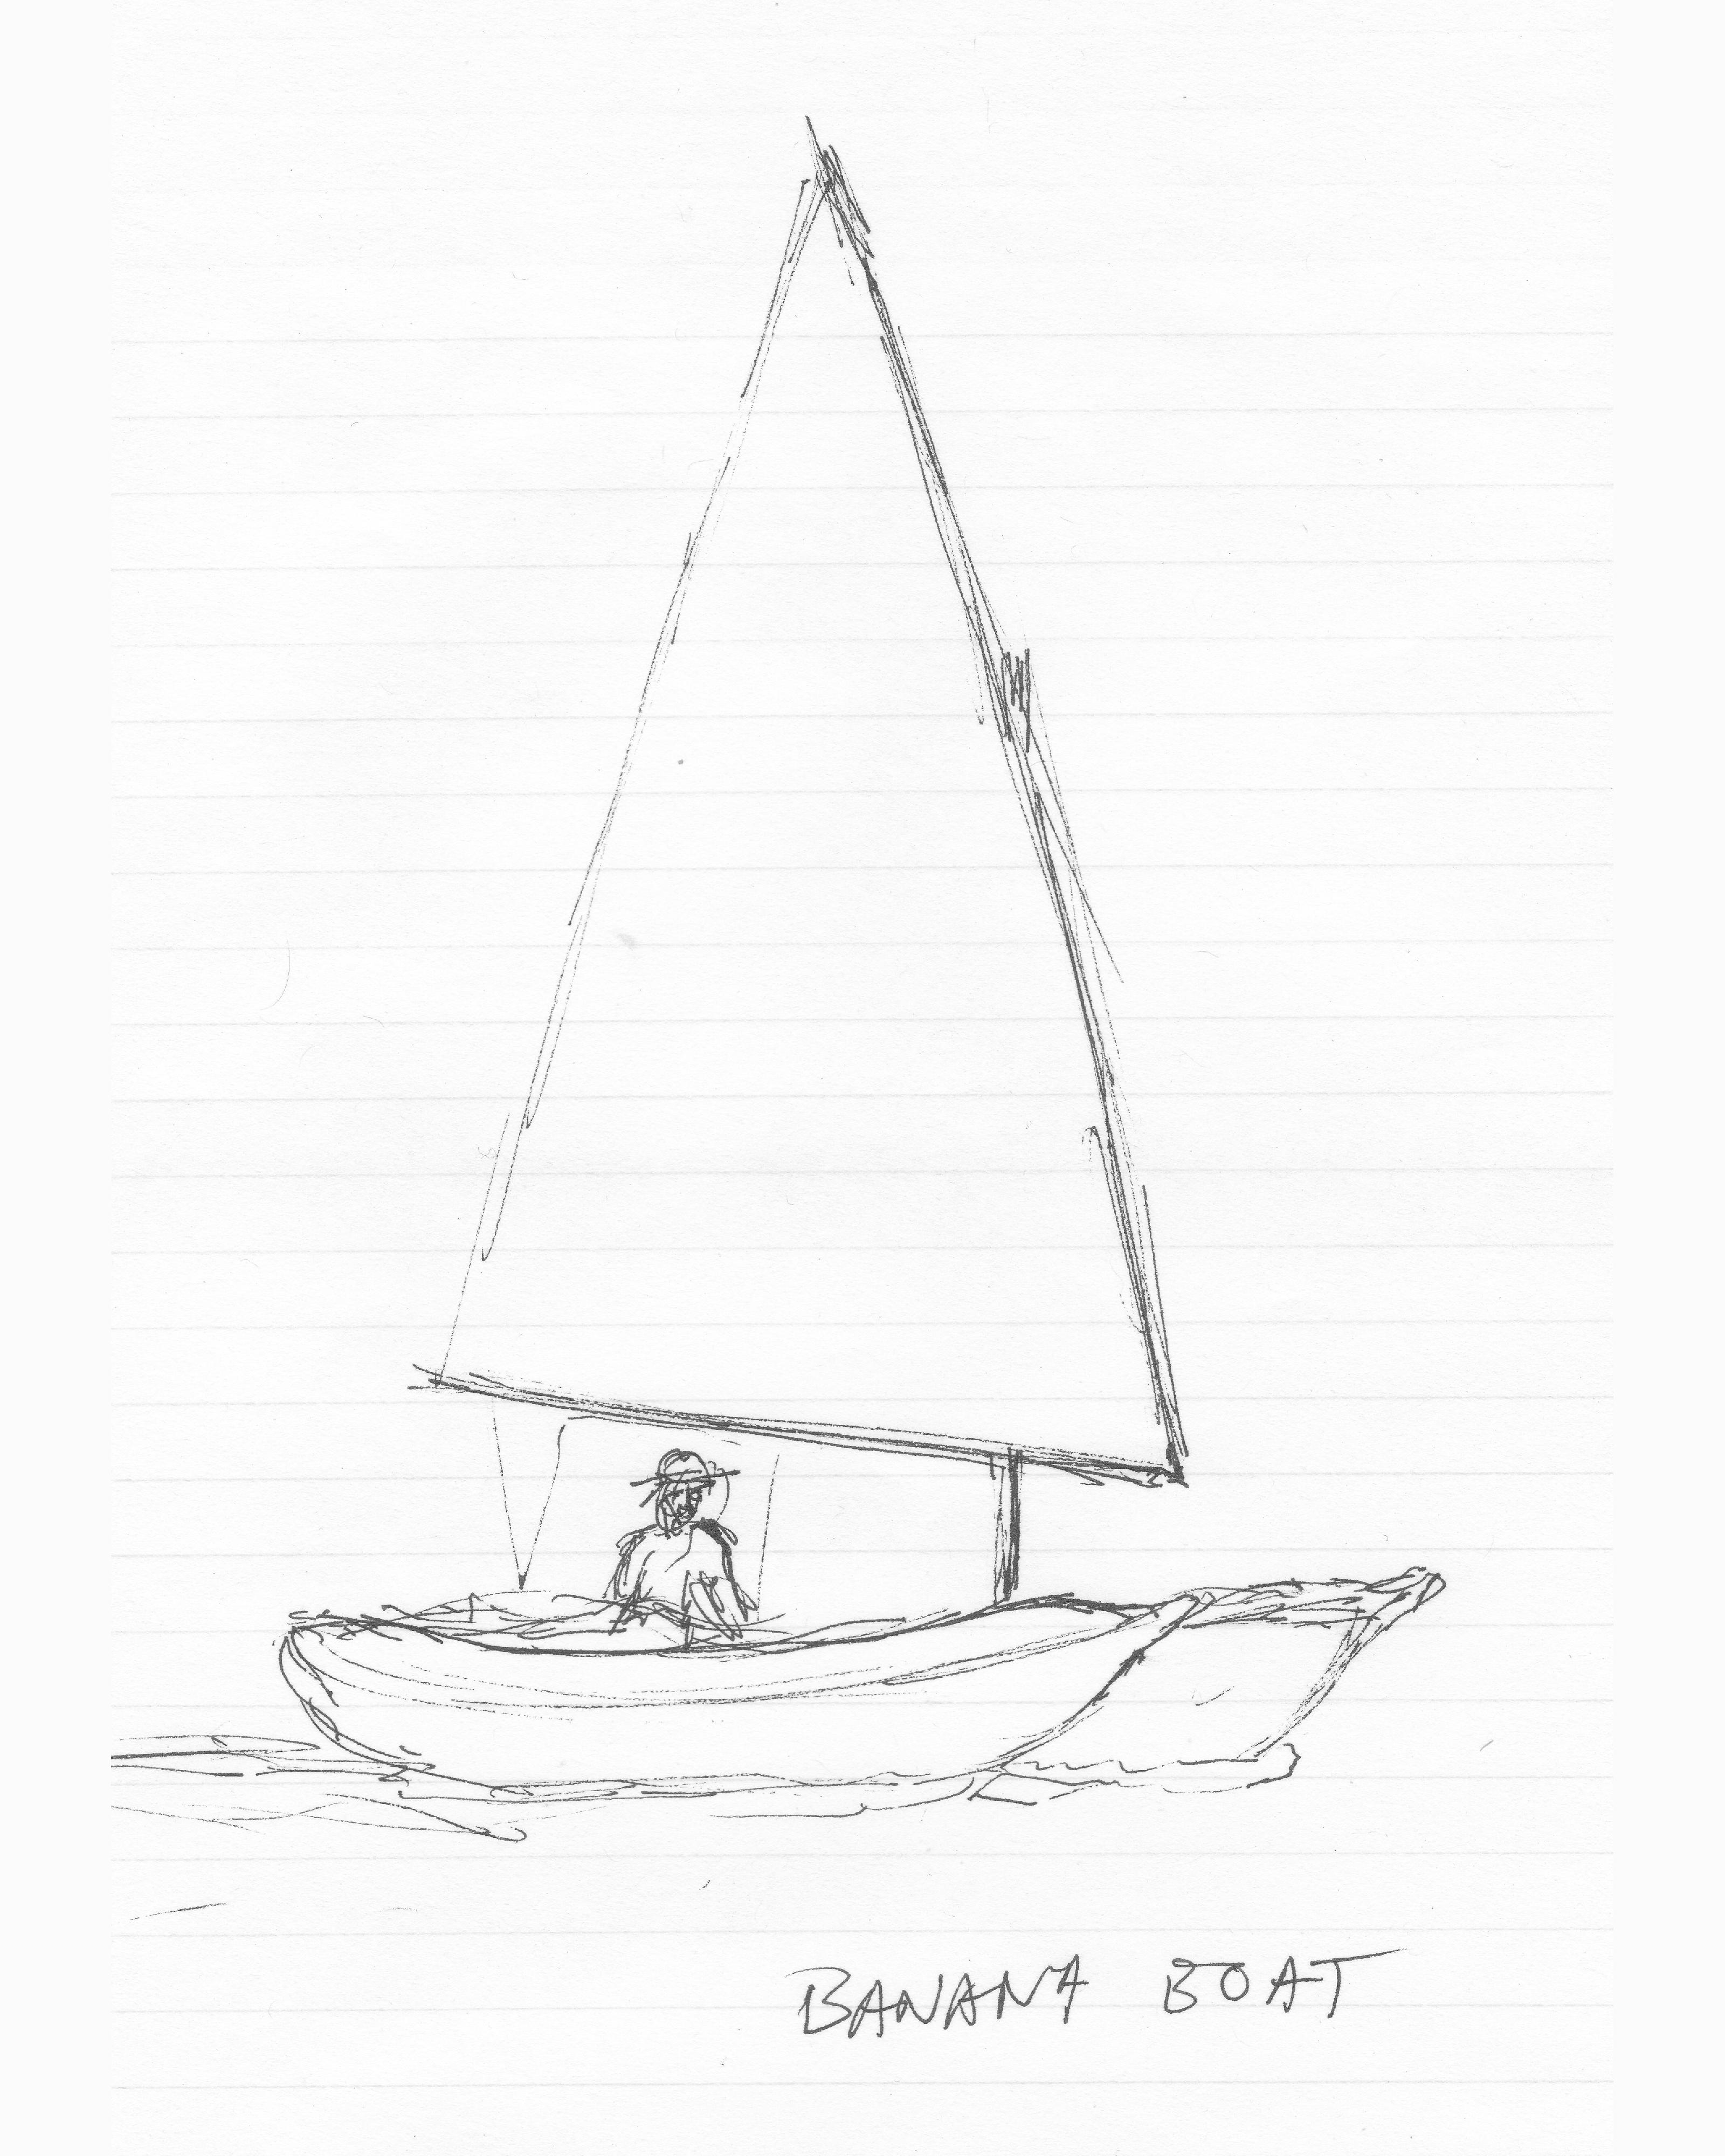 BANANA BOAT